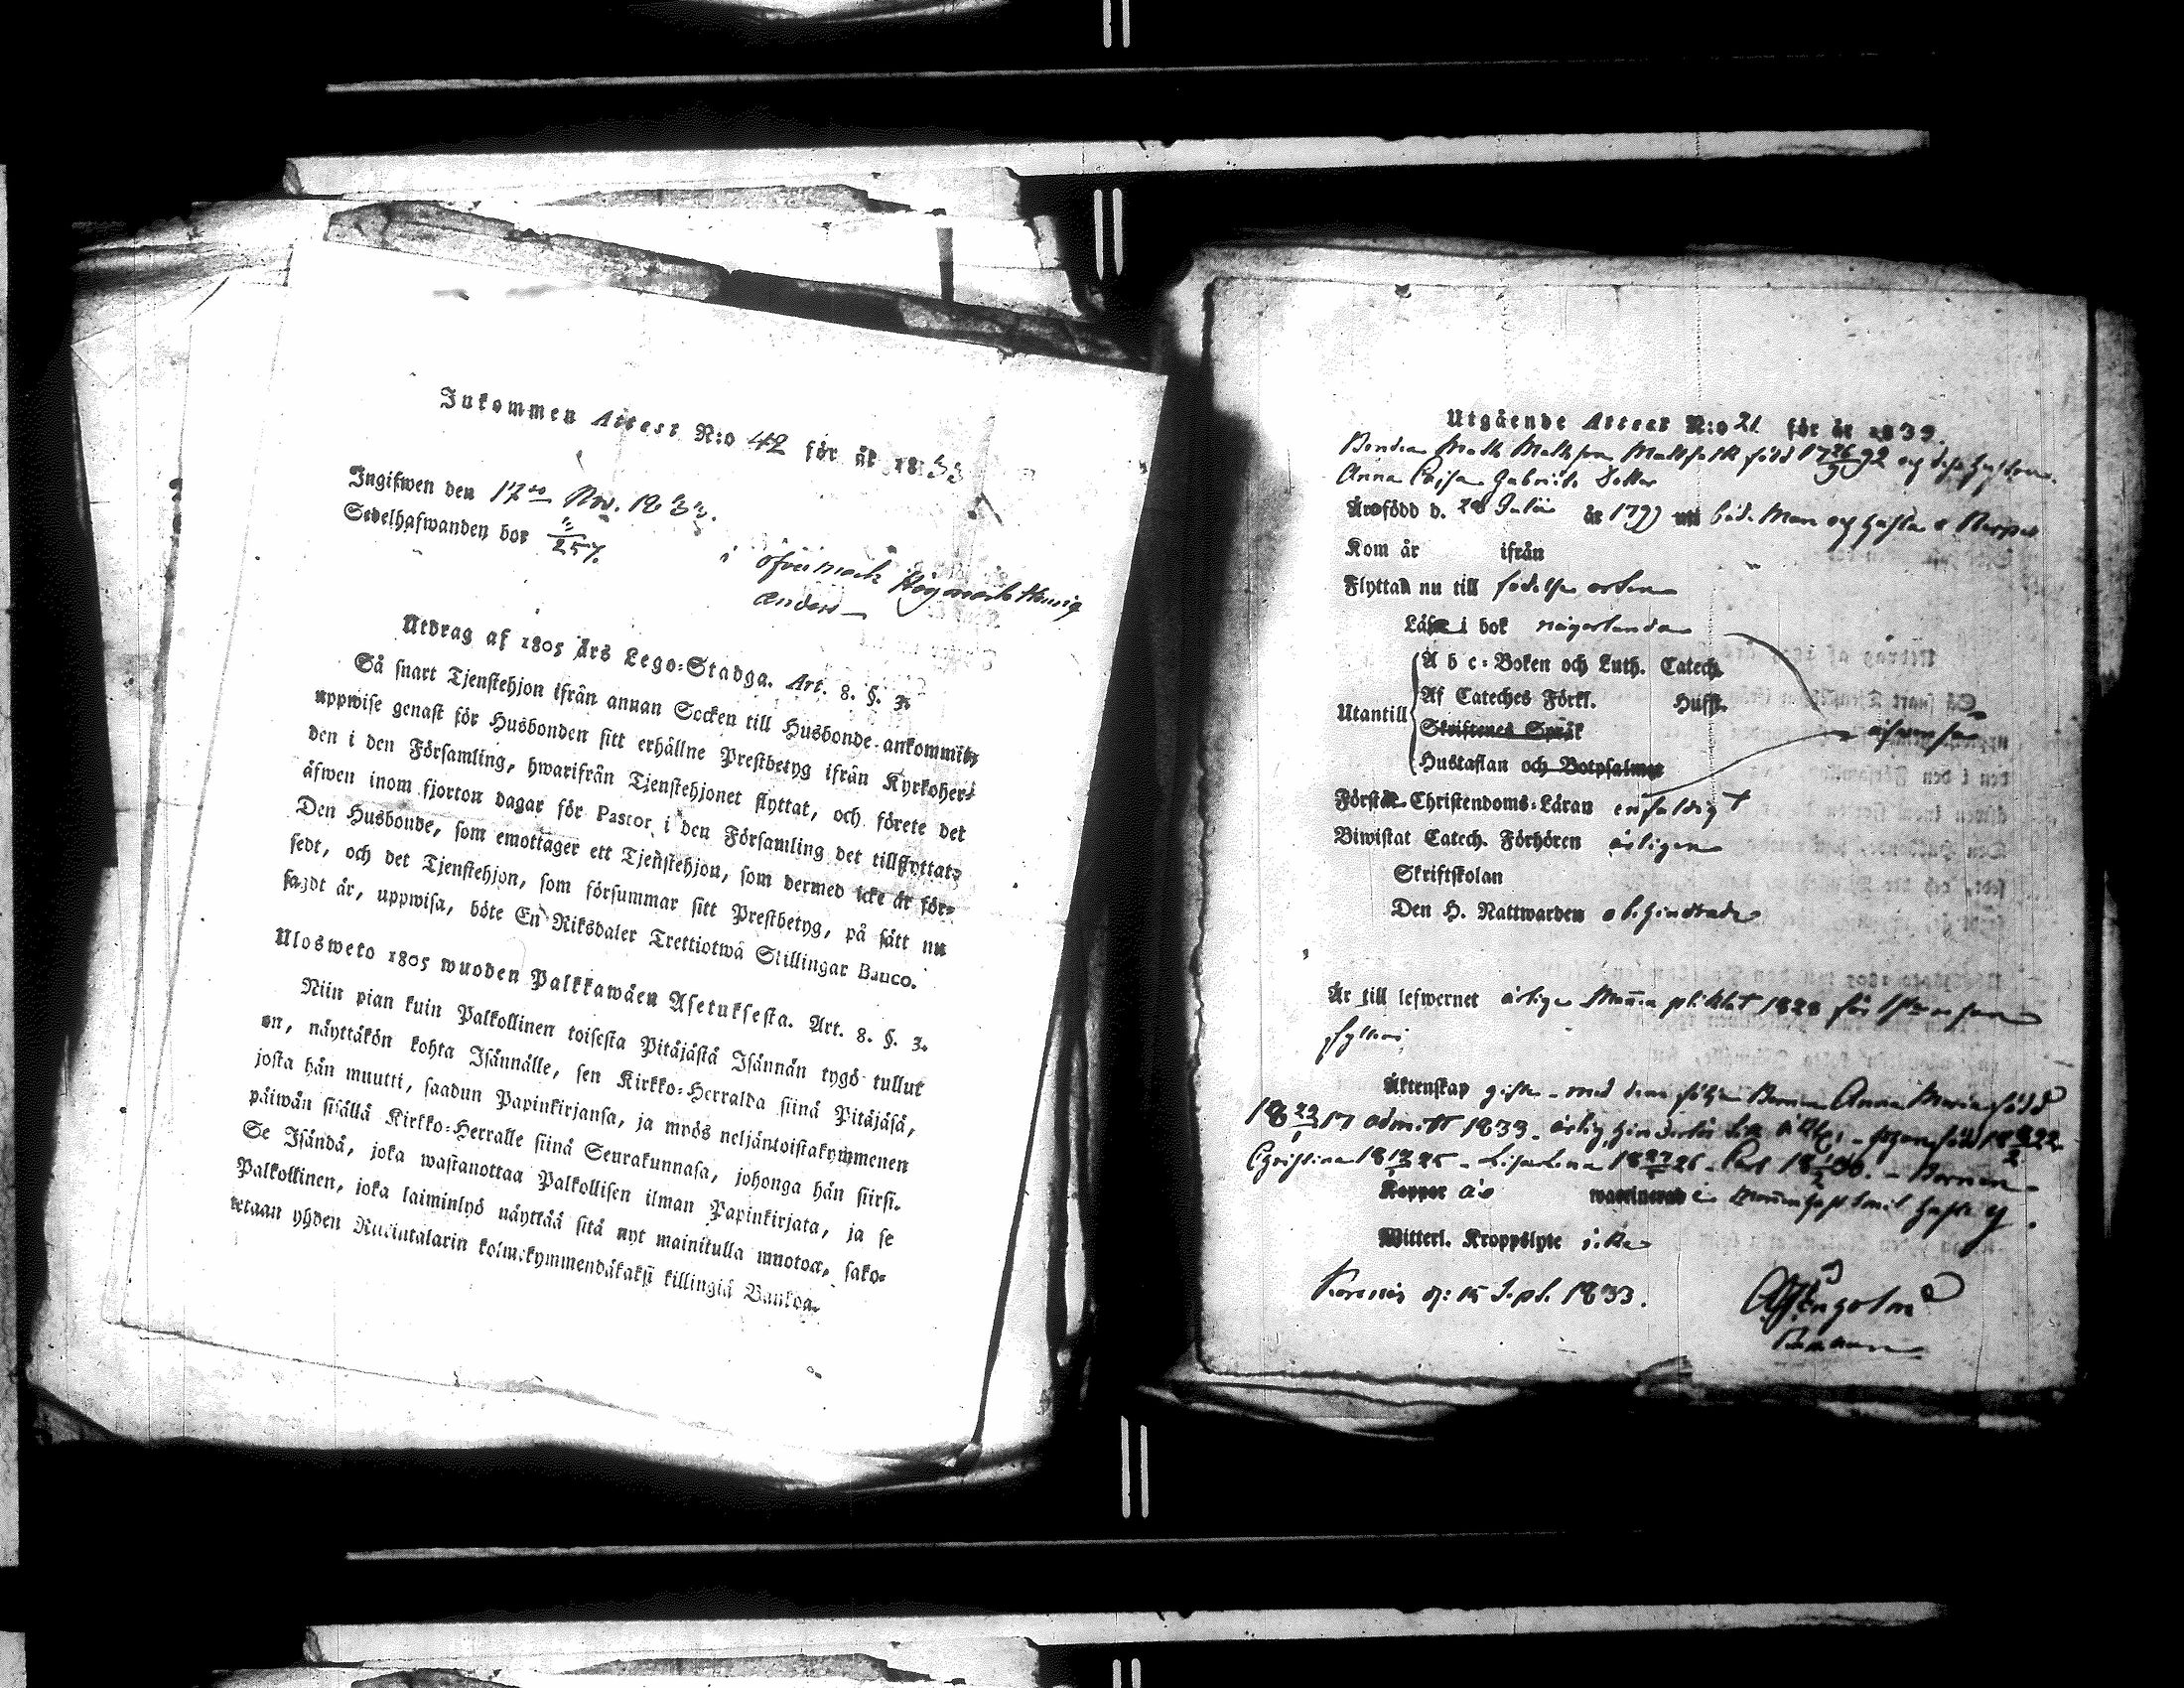 Inkommen Attest N:o 42 för år 1833
Ingifwen den 17de Nov. 1833.
Sedelhafwanden bor 257. i Öfvermark
Anders
Utdrag af 1805 Års Lego-Stadga. Art. 8. §. 3.
Så snart Tjenstehjon ifrån annan Socken till Husbonde ankommit,
uppwise genast för Husbonden sitt erhållne Prestbetyg ifrån Kyrkoher-
den i den Församling, hwarifrån Tjenstehjonet flyttat, och förete det
äfwen inom fjorton dagar för Pastor i den Församling det tillflyttat.
Den Husbonde, som emottager ett Tjenstehjon, som dermed icke är för-
sedt, och det Tjenstehjon, som försummar sitt Prestbetyg, på sätt nu
sagdt är, uppwisa, böte En Riksdaler Trettiotwå Skillingar Banco.
Ulosweto 1805 wuoden Palkkawäen Asetuksesta. Art. 8. §. 3.
Niin pian kuin Palkollinen toisesta Pitäjästä Isännän tygö tullut
on, näyttäkön kohta Isännälle, sen Kirkko-Herralda siinä Pitäjäsä,
josta hän muutti, saadun Papinkirjansa, ja myös neljäntoistakymmenen
päiwän sisällä Kirkko-Herralle siinä Seurakunnasa, johonga hän siirsi.
Se Isändä, joka wastanottaa Palkollisen ilman Papinkirjata, ja se
Palkollinen, joka laiminlyö näyttää sitä nyt mainitulla muotoa, sako-
tetaan yhden Riikintalarin kolmekymmendäkaksi killingiä Bankoa.
Utgående Attest N:o 21 för år 1833.
Bonden Matts Mattsson född 1792 och dess hustru
Anna Cajsa Gabriels Dotter
Är född d. 28 Julii år 1797 både Man och hustru
Kom år ifrån
Flyttad nu till födelse orten
Läse i bok någorlunda
A b c-Boken och Luth. Catech.
Af Cateches Förkl. Hufst.
Utantill
Skriftenes Språk
Hustaflan och Botpsalmer
Förstår Christendoms-Läran enfaldigt
Biwistat Catech. Förhören årligen
Skriftskolan
Den H. Nattwarden obehindrade
Är till lefwernet ärlige Mannen pliktat 1828 för
fylleri
Äktenskap gifte med Barnen Anna Maria född
1817 admitt 1833 ärlig hinderlös till född 1822
Christina 1825 Lisa Lena 1826 Carl 1830 Barnen
Koppor waccinerad
Witterl. Kroppslyte icke
Korsnäs d: 15 Sept. 1833.